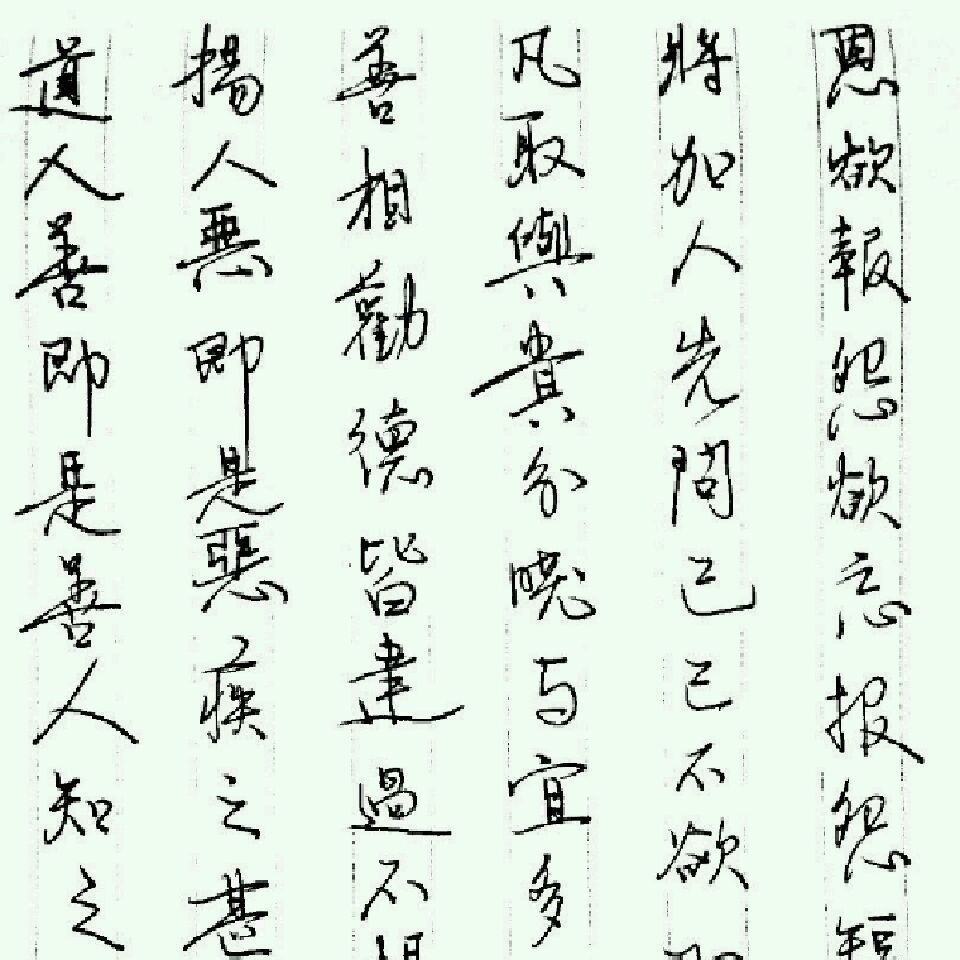 恩欲報怨欲忘报怨短
將加人先問己己不欲即
凡取與貴分曉与宜多
善相勸德皆建過不規
揚人惡即是惡疾之甚
道人善即是善人知之